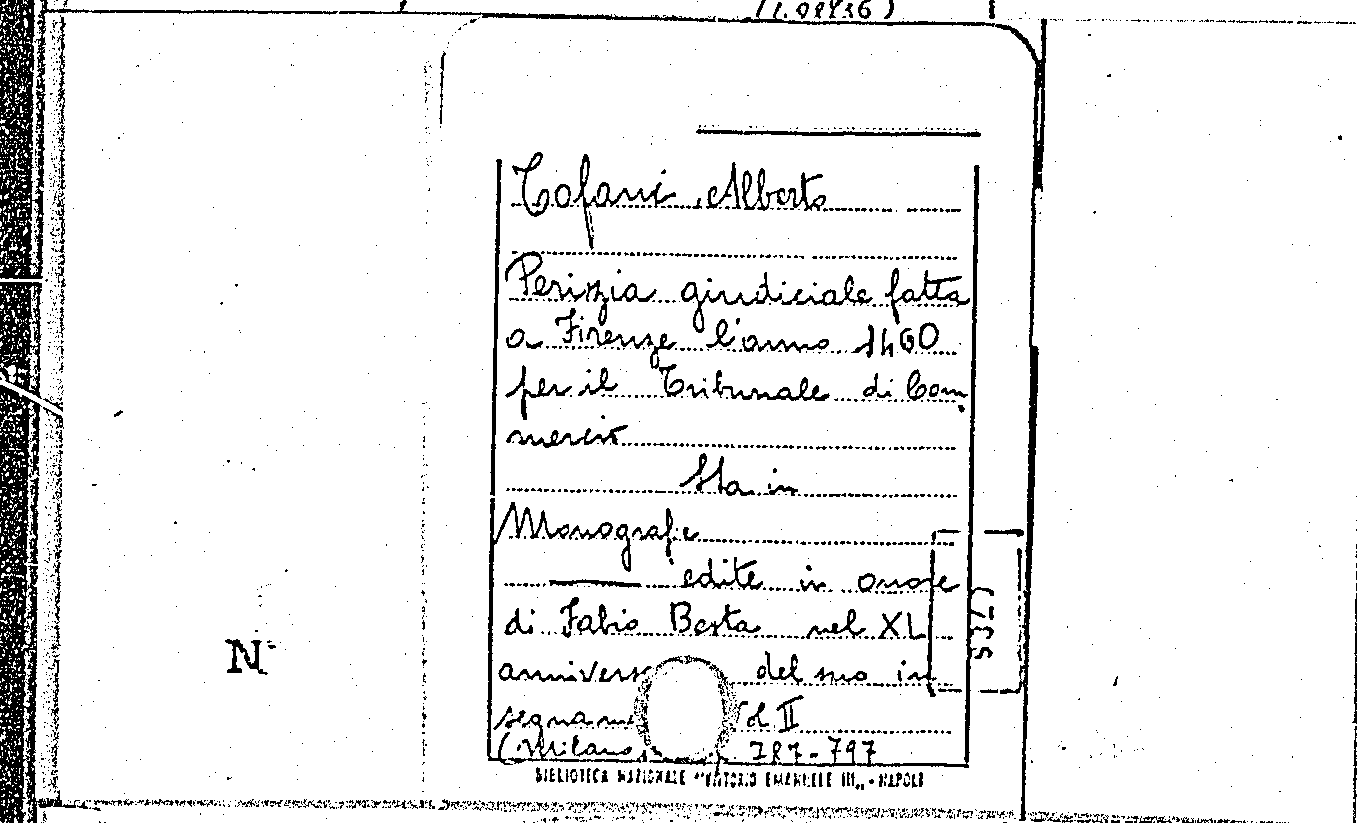 Tofani Alberto
Perizia giudiciale fatta
a Firenze l'anno 1460
per il Tribunale di Com
mercio
Sta in
Monografie
edite in onore
di Fabio Besta nel XL
annivers del suo in
segnam Vol II
(Milano, 787-797
BIBLIOTECA NAZIONALE "VITTORIO EMANUELE III„ - NAPOLI
N